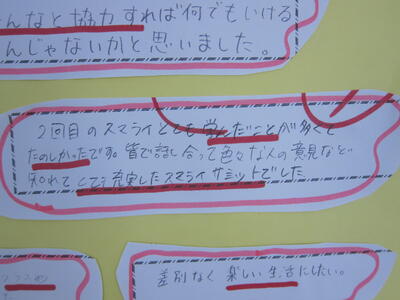 んなと協力すれば何でもいける
んじゃないかと思いました。
2回目のスマライとても学んだことが多くて
たのしかったです。皆で話し合って色々な人の意見など
知れてとても充実したスマライサミットでした
差別なく楽しい生活にしたい。